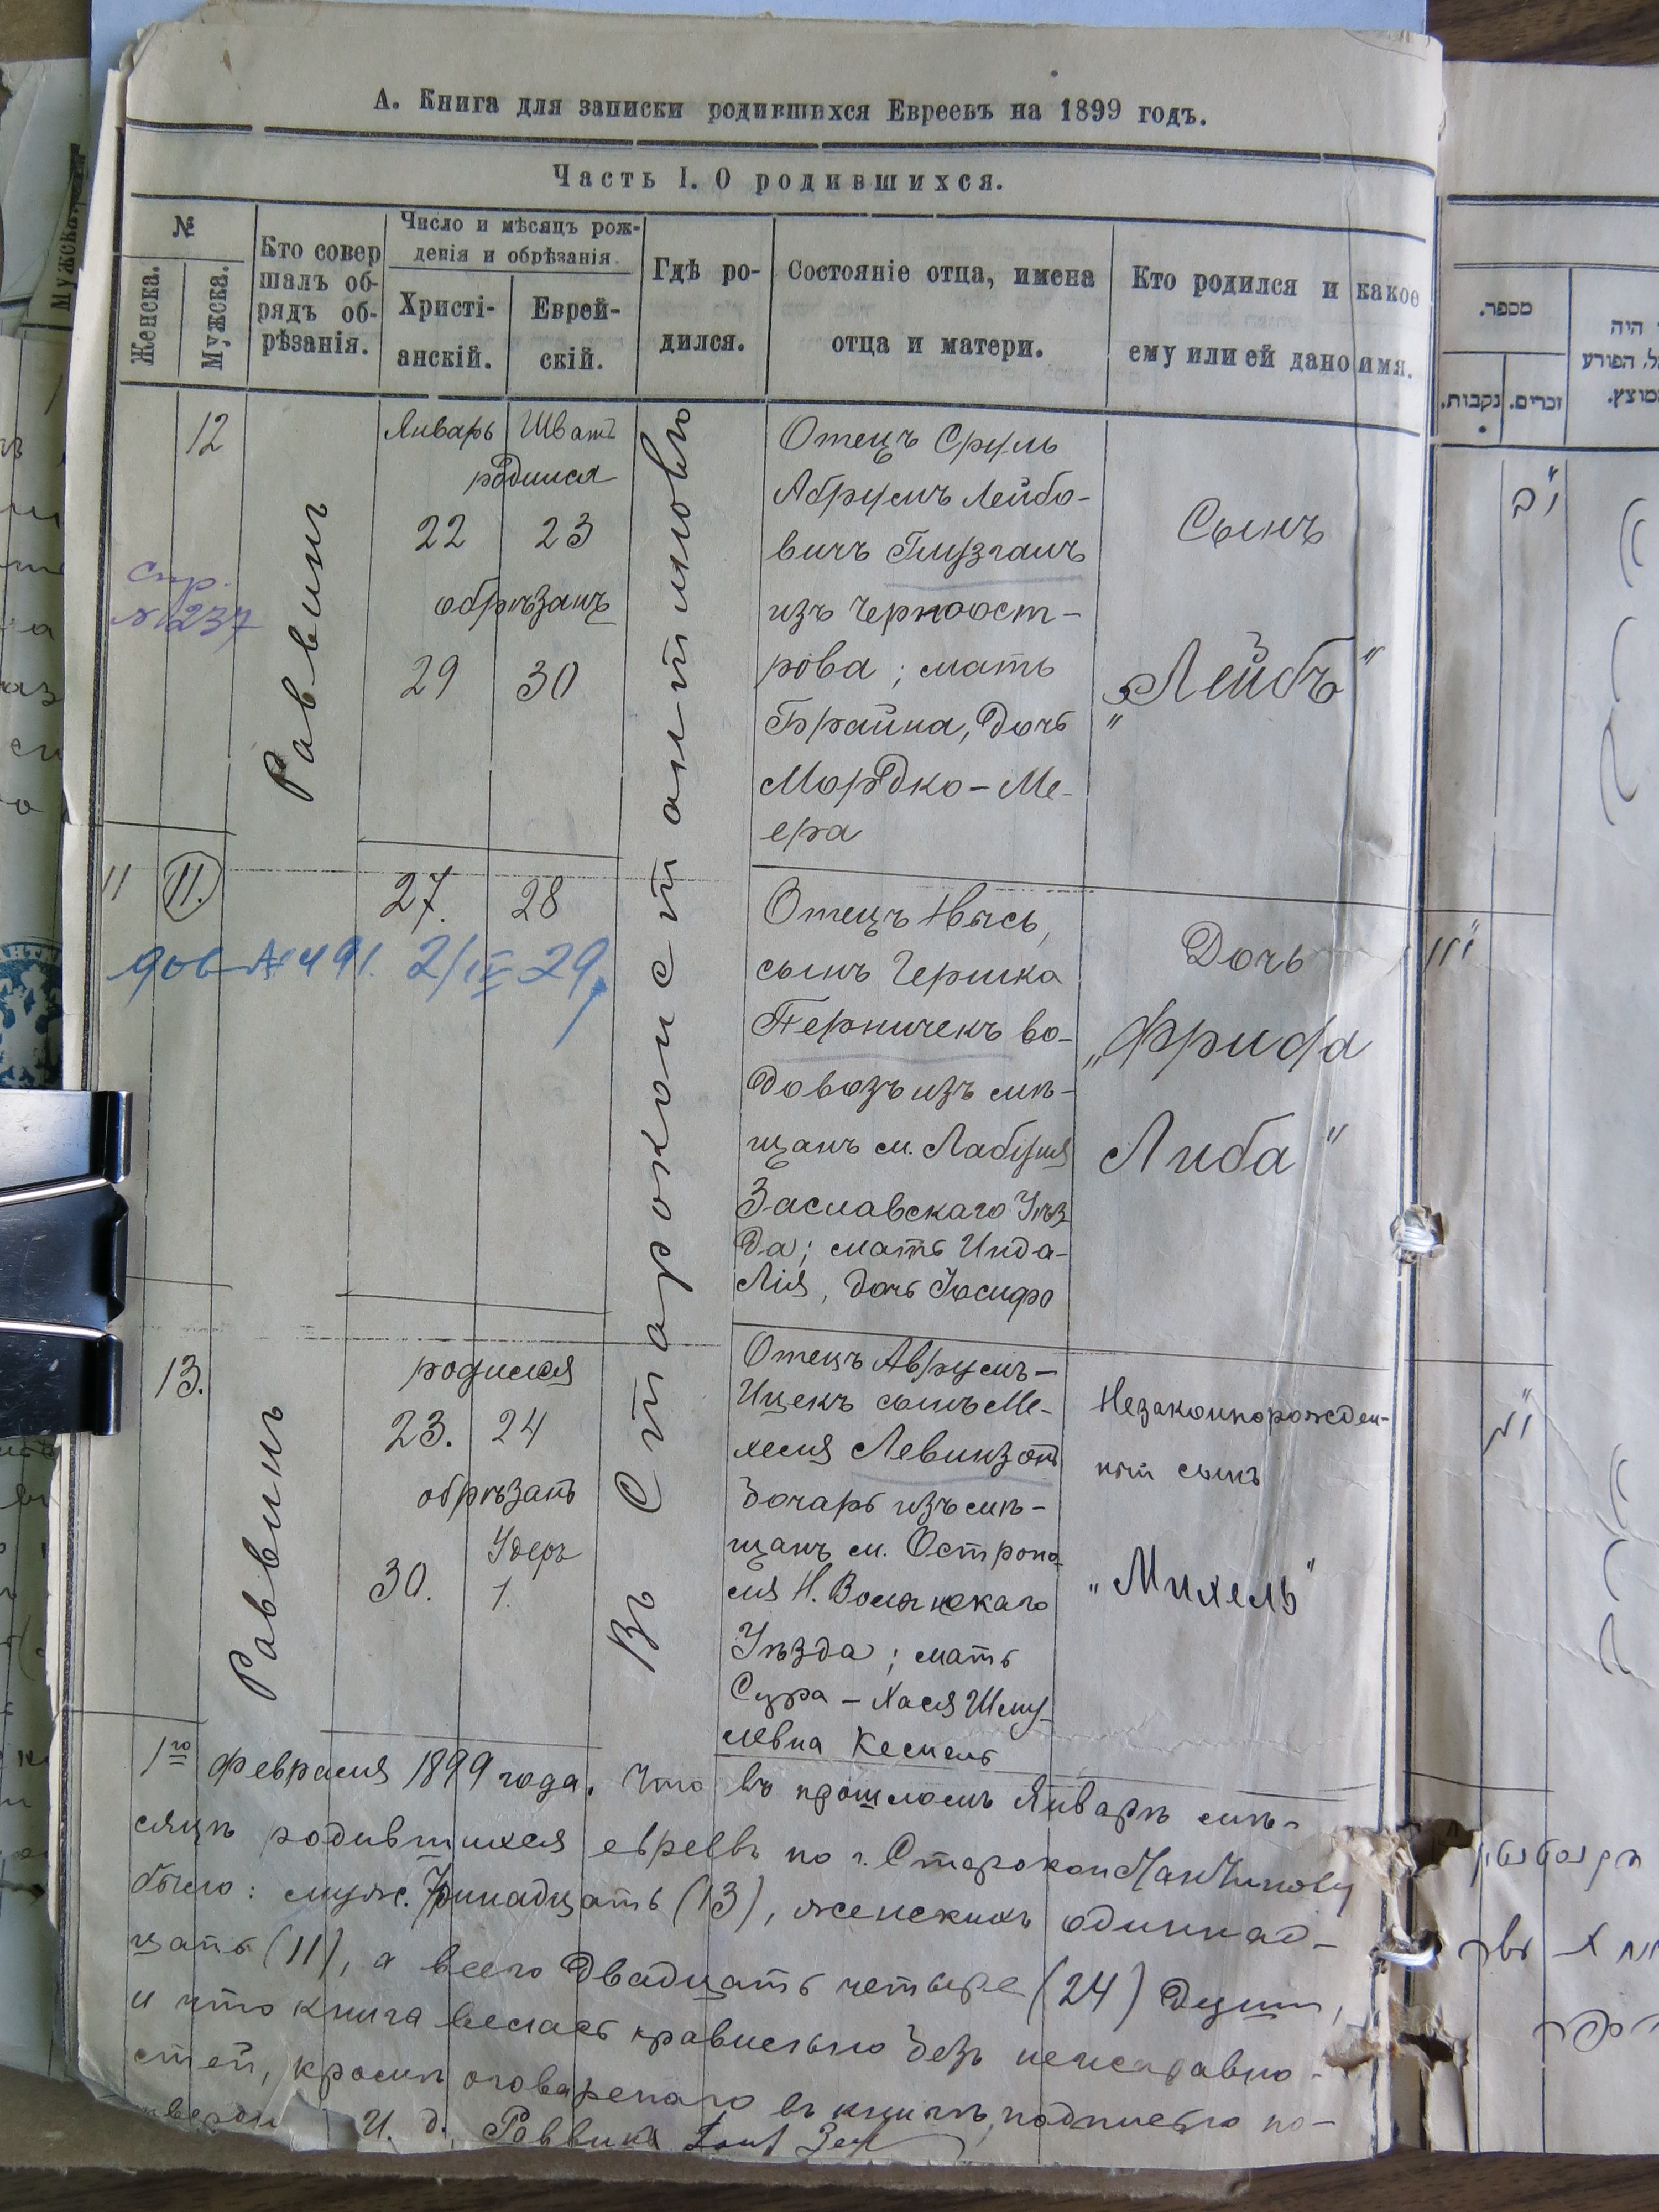 А. Книга для записки родившихся Евреевъ на 1899 годъ.
Часть I. О родившихся.
№
Женска.
Мужска.
Кто совер
шалъ об-
рядъ об-
рѣзанія.
Число и мѣсяцъ рож-
денія и обрѣзанія.
Христі-
анскій.
Еврей-
скій.
Гдѣ ро-
дился.
Состояніе отца, имена
отца и матери.
Кто родился и какое
ему или ей дано имя.
12
Раввинъ
Январь Шватъ
родился
22 23
обрѣзанъ
29 30
Въ Староконстантиновѣ
Отецъ Сруль
Абрумъ Лейбо-
вичъ Глузганъ
изъ Черноост-
рова; мать
Брайна, дочь
Мордко-Ме-
ера
Сынъ
„Лейбъ"
стр.
№ 237
11 11.
27. 28
дов № 491. 2/IX 29
Отецъ Нысь,
сынъ Гершка
Перничекъ во-
довозъ изъ мѣ-
щанъ м. Лабуня
Заславскаго Уѣз
да; мать Инда-
Лія, дочь Іосифа
Дочь
„Фрифа
Либа"
13.
Раввинъ
родился
23. 24
обрѣзанъ
Удеръ
30. 1.
Отецъ Аврумъ-
Ицекъ сынъ Ме-
хеля Левинзонъ
бочаръ изъ мѣ-
щанъ м. Остропо
ля Н. Волынскаго
Уѣзда; мать
Сура-Хася Шму-
левна
Незаконнорожден-
ный сынъ
„Михель"
1го Февраля 1899 года. Что въ прошломъ Январѣ мѣ-
сяцѣ родившихся евреевъ по г. Староконстантинову
было: муж. Тринадцать (13), женскихъ одиннад-
цать (11), а всего двадцать четыре (24) душ,
и что книга велась правильно безъ неисправно-
стей, кромѣ оговоренаго въ книгѣ, подписью по-
И. д. Раввина
מספר.
נקבות.
זכרים.
היה
הפורע
י"ב
י"א
י"ג